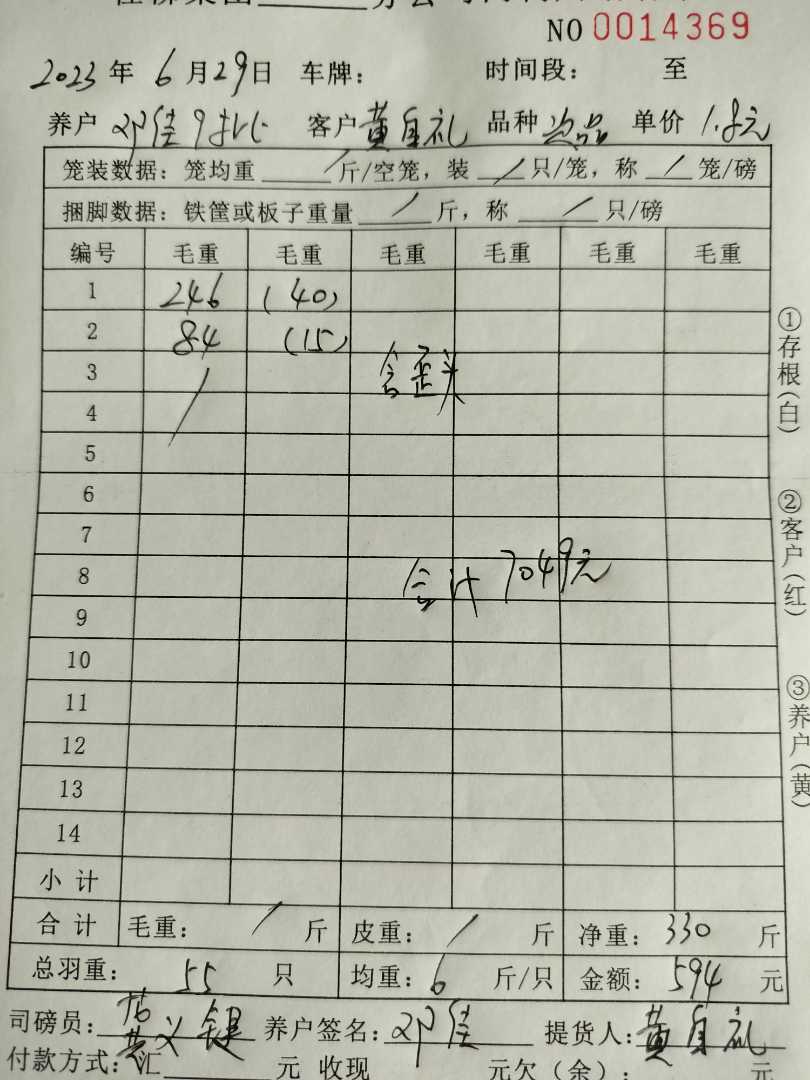 NO 0014369
2023 年 6 月 29 日 车牌： 时间段： 至
养户 邓佳 客户 黄自礼 品种 次品 单价 1.8元
笼装数据：笼均重 / 斤/空笼，装 / 只/笼，称 / 笼/磅
捆脚数据：铁筐或板子重量 / 斤，称 / 只/磅
编号 毛重 毛重 毛重 毛重 毛重 毛重
1 246 (40)
2 84 (15)
3 / 含歪头
4
5
6
7
8 合计 7049元
9
10
11
12
13
14
小计
合计 毛重： / 斤 皮重： / 斤 净重：330 斤
总羽重： 55 只 均重：6 斤/只 金额：594 元
司磅员： 养户签名：邓佳 提货人：黄自礼
付款方式：汇 元 收现 元欠（余）： 元
①存根(白)
②客户(红)
③养户(黄)